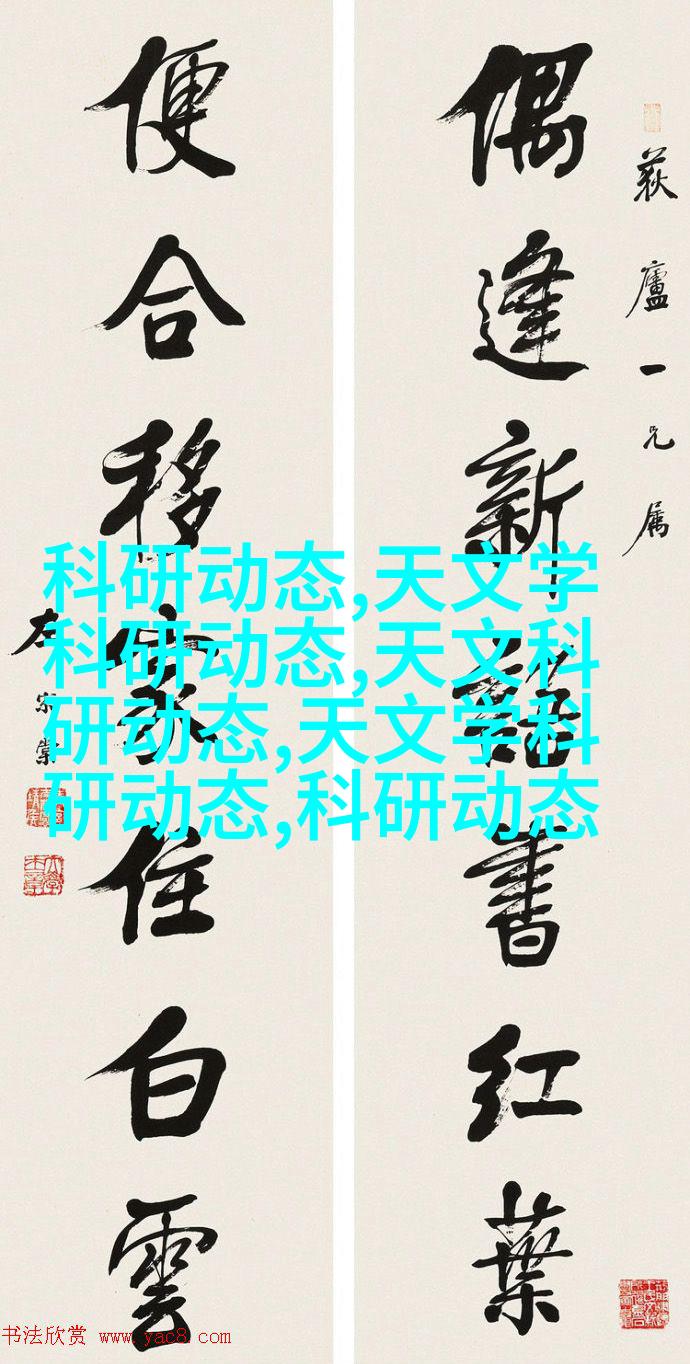 偶逢新語書紅葉
荻廬一兄屬
便合移家住白雲
左宗棠
科研动态,天文学
科研动态,天文科
研动态,天文学科
研动态,科研动态
书法欣赏 www.yac8.com